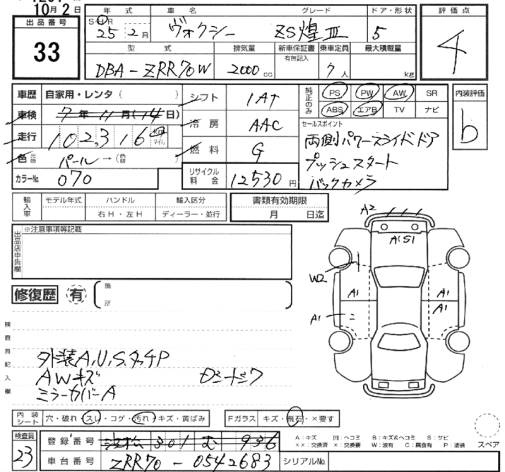 10月2日
出品番号
33
年式
車名
グレード
ドア・形状
評価点
25年2月
ヴォクシー
ZS煌III
5
4
型式
排気量
新車保証書
有無記入
乗車定員
最大積載量
DBA-ZRR70W
2000cc
7人
kg
車歴
自家用・レンタ
シフト
IAT
純正のみ
PS
PW
AW
SR
ABS
エアB
TV
ナビ
内装評価
b
車検
7年11月14日
冷房
AAC
セールスポイント
両側パワースライドドア
プッシュスタート
バックカメラ
走行
102,316
色
パール
燃料
G
カラーNo.
070
リサイクル料金
12530円
輸入車
モデル年式
ハンドル
右H・左H
輸入区分
ディーラー・並行
書類有効期限
月
日迄
出品店申告欄
※注意事項等記載
修復歴
有
検査員記入欄
外装A,U,S,タッチP
AWキズ
ミラーカバーA
A2
A1S1
W2
A1
A1
A1
内装シート
穴・破れ・スレ・コゲ・汚れ・キズ・黄ばみ
Fガラス
キズ・飛石・×要す
スペア
検査員
23
登録番号
301
む
936
車台番号
ZRR70-0542683
シリアルNo.